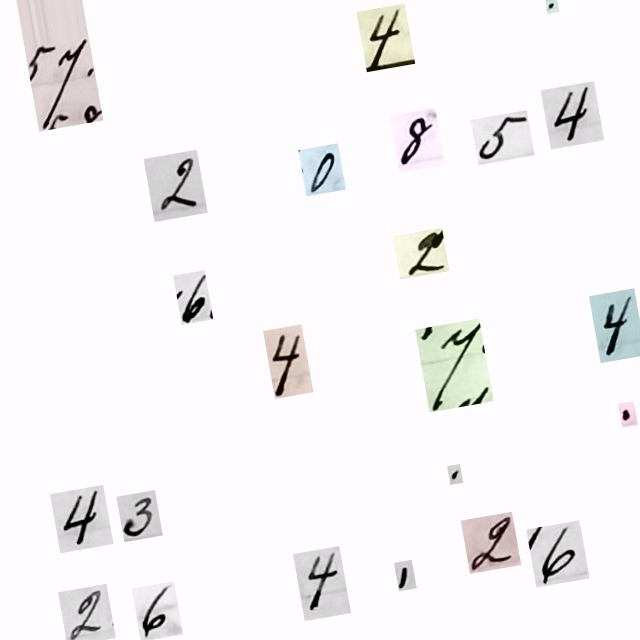 4
7
8 5 4
2 0
2
6
4 7 4
4 3
2 6
4 2 6